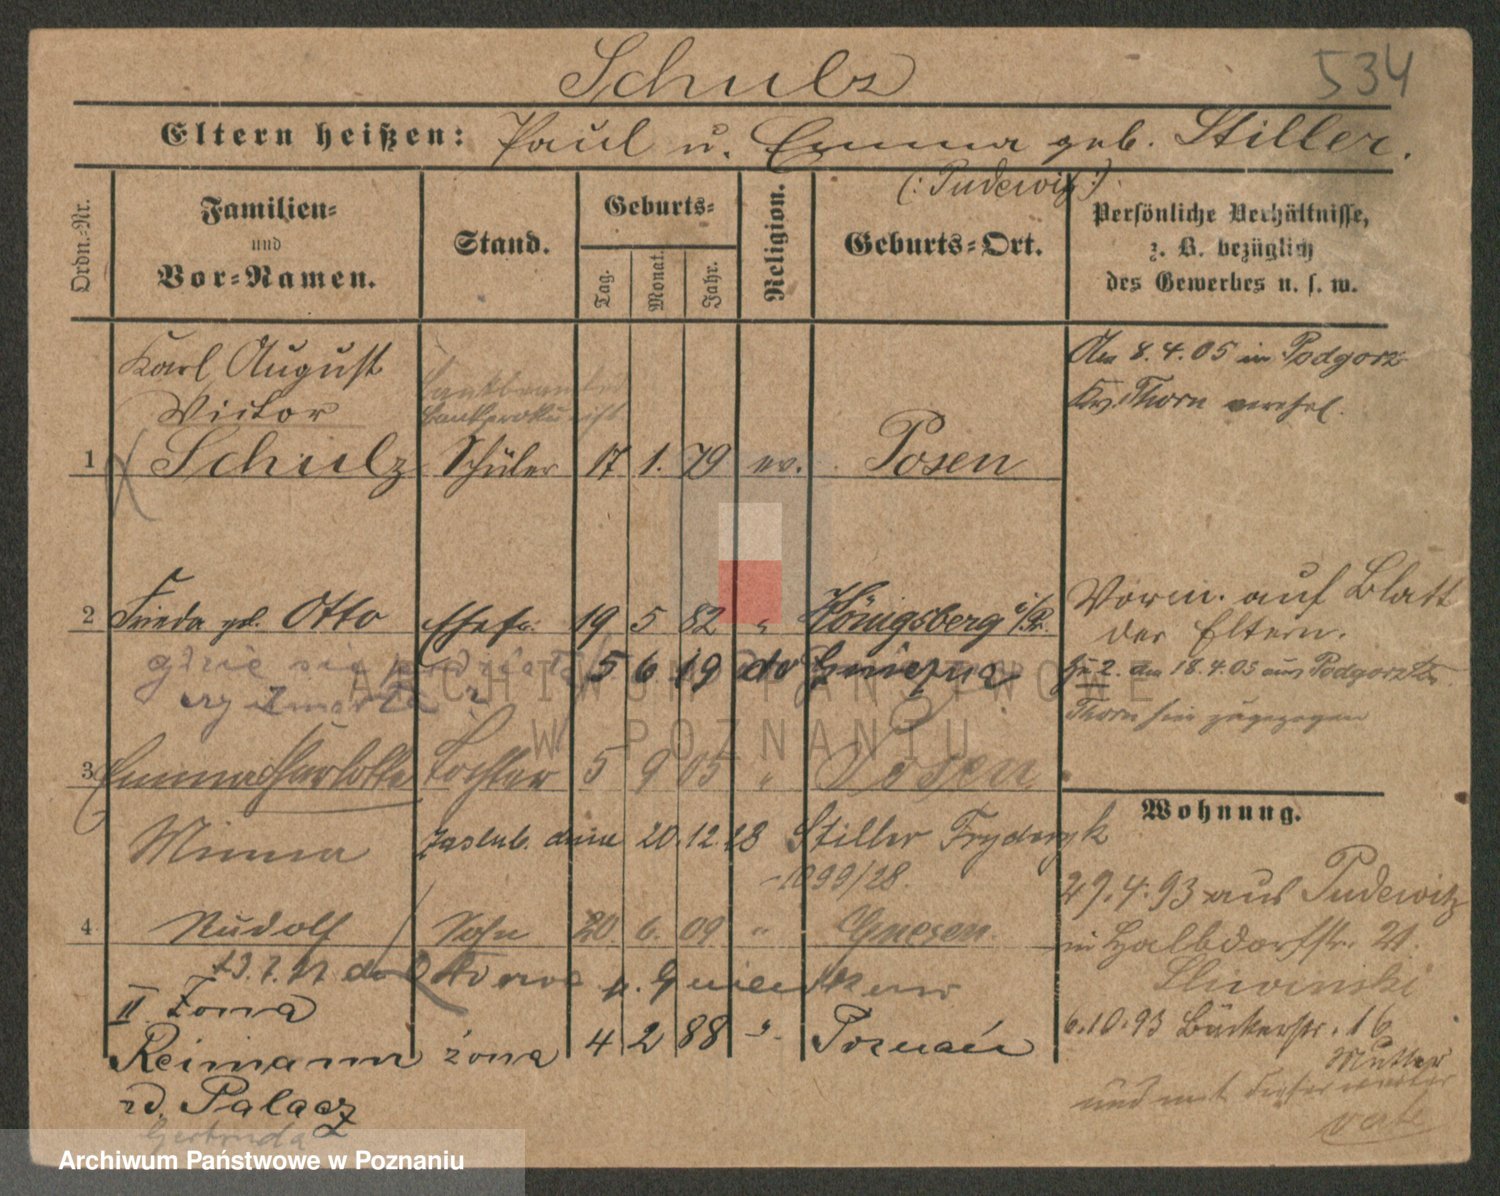 Schulz
534
Eltern heißen: Paul u. Emma geb. Stiller.
(: Pudewitz :)
Ordn.-Nr.
Familien-
und
Vor-Namen.
Stand.
Geburts-
Tag.
Monat.
Jahr.
Religion.
Geburts-Ort.
Persönliche Verhältnisse,
z. B. bezüglich
des Gewerbes u. s. w.
Karl August
Victor
1 Schulz Schüler 17 1. 79 ev. Posen
Am 8.4.05 in Podgorz
Kr. Thorn verehel.
2 Frieda geb. Otto Ehefr. 19 5 82 " Königsberg i/Pr.
gdzie się podziała 5 6 19 do Gniezna
czy zmarła
Vorm. auf Blatt
der Eltern.
zu 2. am 18.4.05 aus Podgorz Kr.
Thorn hier zugezogen
3 Emma Charlotte Tochter 5 9 05 " Posen
Minna zaślub. dnia 20.12.28 Stiller Fryderyk
1099/28.
4 Rudolf Sohn 20. 6. 09 " Gnesen
II Żona
Reimann żona 4 2 88 " Poznań
zd. Palacz
Gertruda
Wohnung.
29.4.93 aus Pudewitz
in Halbdorfstr. 21.
Sliwinski
6.10.93 Bäckerstr. 16
Mutter
und mit dieser weiter
verte
ARCHIWUM PAŃSTWOWE
W POZNANIU
Archiwum Państwowe w Poznaniu